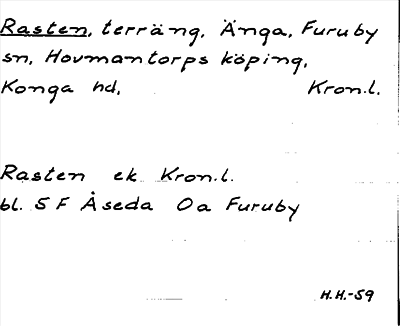 Rasten, terräng, Änga, Furuby
sn, Hovmantorps köping,
Konga hd, Kron.l.
Rasten ek Kron.l.
bl. 5 F Åseda Oa Furuby
H.H.-59